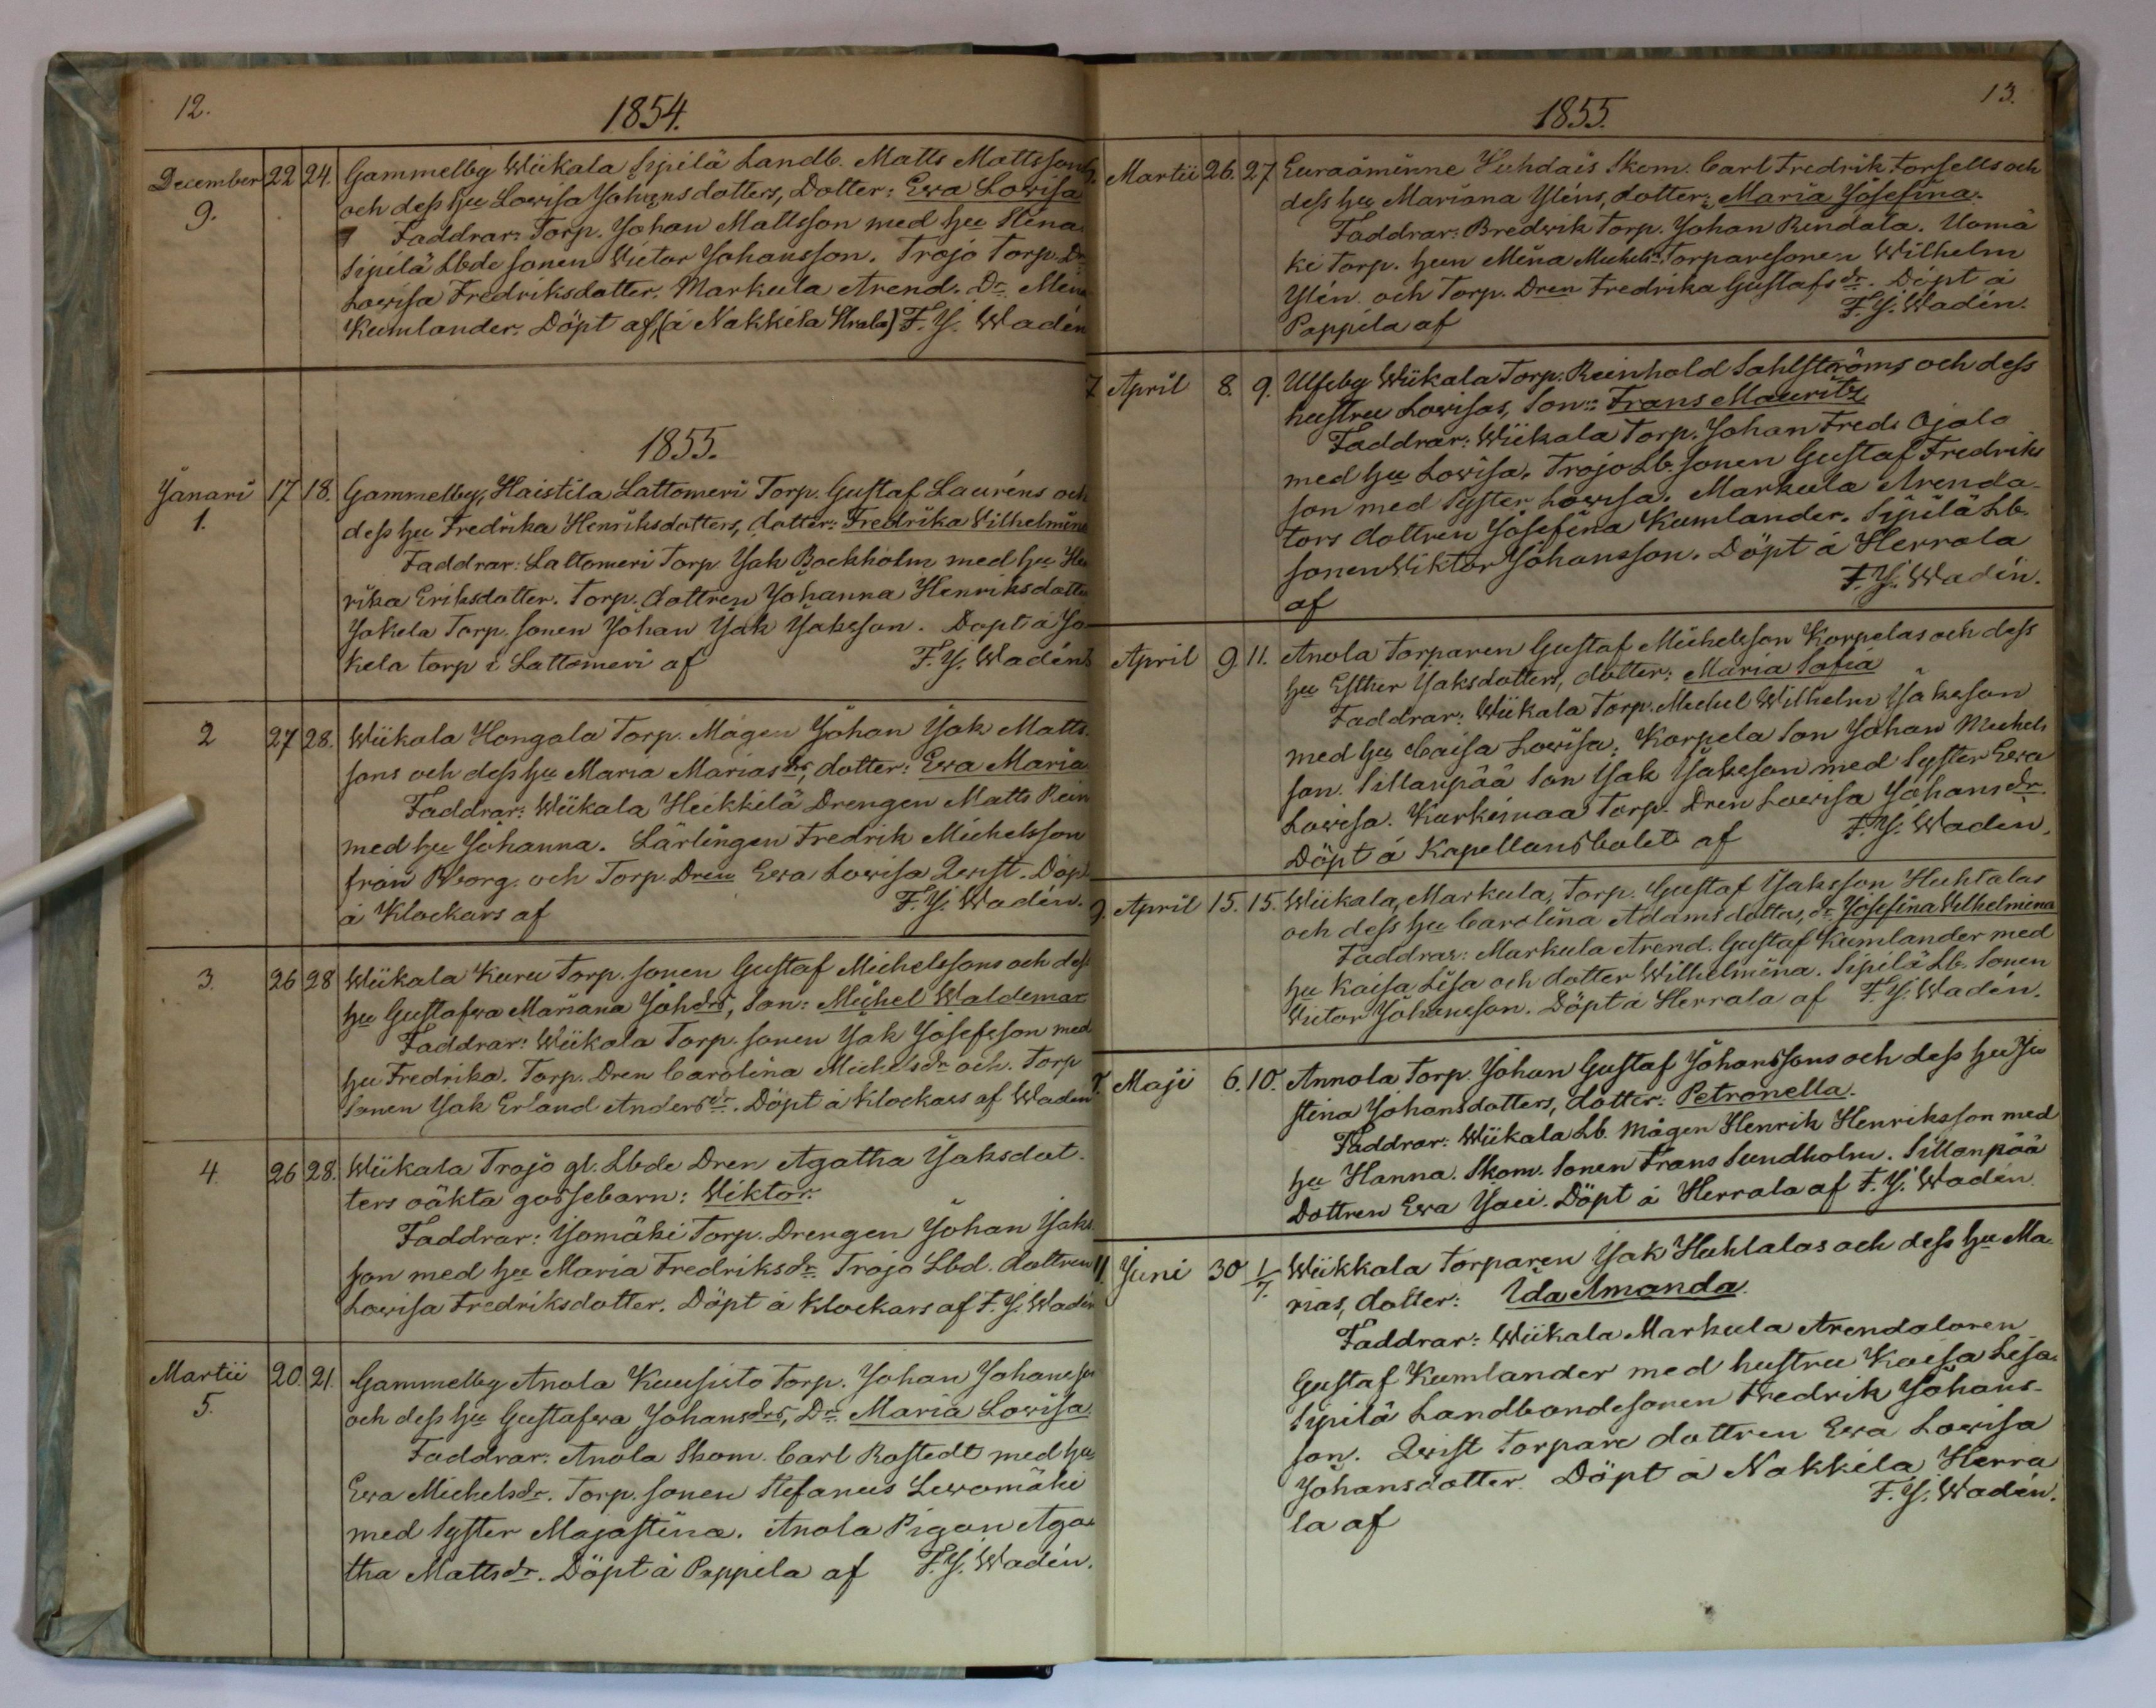 12.
1854.
December 22 24. Gammelby Wiikala Sipilä Landb. Matts Mattsson
9. och dess hu Lowisa Johansdotters, Dotter: Ewa Lowisa
Faddrar: Torp. Johan Mattsson med hu Stina
Sipilä Lbde sonen Victor Johansson. Trojo Torp. Dr
Lowisa Fredriksdotter. Markula Arend. Dr Mina
Kumlander. Döpt af, (å Nakkela) F. J. Wadén
1855.
Janari 17 18. Gammelby, Haistila Lattomeri Torp. Gustaf Lauréns och
1. dess hu Fredrika Henriksdotters, dotter: Fredrika Wilhelmina
Faddrar: Lattomeri Torp. Jak Bockholm med hu Hen
rika Eriksdotter. Torp. dottren Johanna Henriksdotter
Jakela Torp. sonen Johan Jak Jaksson. Döpt å Ja
kela torp i Lattomeri af F. J. Wadén
2 27 28. Wiikala Hongala Torp. Mågen Johan Jak Matts
sons och dess hu Maria Mariasdrs, dotter: Ewa Maria
Faddrar: Wiikala Heikkilä Drengen Matts Rein
med hu Johanna. Lärlingen Fredrik Michelsson
från Bborg. och Torp. Dren Ewa Lowisa Qwist. Döpt
å Klockars af F. J. Wadén.
3. 26 28 Wiikala Kuru Torp. sonen Gustaf Michelssons och dess
hu Gustafwa Mariana Johdrs, Son: Michel Waldemar
Faddrar: Wiikala Torp. sonen Jak Josefsson med
hu Fredrika. Torp. Dren Carolina Michelsdr och. Torp
Sonen Jak Erland Anders. Döpt å Klockars af Wadén
4. 26 28. Wiikala Trojo gl. Lbde Dren Agatha Jaksdot-
ters oäkta gossebarn: Wiktor.
Faddrar: Jomäki Torp. Drengen Johan Jaks
son med hu Maria Fredriksdr. Trojo Lbd. dottren
Lowisa Fredriksdotter. Döpt å Klockars af F. J. Wadén
Martii 20. 21. Gammelby Anola Kuusisto Torp. Johan Johansson
5. och dess hu Gustafwa Johansdrs, Dr Maria Lowisa
Faddrar: Anola Skom. Carl Rostedt med hu
Ewa Michelsdr. Torp. sonen Stefanus Lewomäki
med Syster Majastina. Anola Pigan Aga-
tha Mattsdr. Döpt å Pappila af F. J. Wadén.
13.
1855.
6. Martii 26. 27 Euraåminne Skom. Carl Fredrik Forsells och
dess hu Mariana Yléns, dotter: Maria Josefina.
Faddrar: Bredwik Torp. Johan Rindala. Uomä
ki Torp. hun Mina Michels. Torparesonen Wilhelm
Ylén. och Torp. Dren Fredrika Gustafsdr. Döpt å
Pappila af F. J. Wadén.
7 April 8. 9. Ulfsby Wiikala Torp. Reinhold Sahlströms och dess
hustru Lowisas, Son: Frans Mauritz
Faddrar: Wiikala Torp. Johan Fredr Ojala
med hu Lowisa. Trojo Lb. sonen Gustaf Fredriks
son med Syster Lowisa. Markula Arenda-
tors dottren Josefina Kumlander. Sipilä Lb.
sonen Wiktor Johansson. Döpt å Herrala
af F. J. Wadén.
8 April 9. 11. Anola Torparen Gustaf Michelsson Korpelas och dess
hu Esther Jaksdotters, dotter: Maria Sofia
Faddrar: Wiikala Torp. Michel Wilhelm Jaksson
med hu Caisa Lowisa. Korpela Son Johan Michels
son. Sillanpää Son Jak Jaksson med Syster Ewa
Lowisa. Kurkimaa Torp. Dren Lowisa Johansdr.
Döpt å Kapellansbolet af F. J. Wadén.
9. April 15. 15. Wiikala, Markula, Torp. Gustaf Jaksson Huhtalas
och dess hu Carolina Adamsdotter, dr Josefina Wilhelmina
Faddrar: Markula Arend. Gustaf Kumlander med
hu Kaisa Lisa och dotter Wilhelmina. Sipilä Lb. Sonen
Victor Johansson. Döpt å Herrala af F. J. Wadén.
Maji 6. 10. Annola Torp. Johan Gustaf Johanssons och dess hu Ju
stina Johansdotters, dotter: Petronella.
Faddrar: Wiikala Lb. Mågen Henrik Henriksson med
hu Hanna. Skom. Sonen Frans Sundholm. Sillanpää
Dottren Ewa Jaci. Döpt å Herrala af F. J. Wadén.
11. Juni 30 1/7. Wiikkala Torparen Jak Huhtalas och dess hu Ma-
rias, dotter: Ida Amanda.
Faddrar: Wiikala Markula Arendatoren
Gustaf Kumlander med hustru Kaisa Lisa.
Sipilä Landbondesonen Fredrik Johans-
son. Qwist Torpare dottren Ewa Lowisa
Johansdotter. Döpt å Nakkila Herra
la af F. J. Wadén.